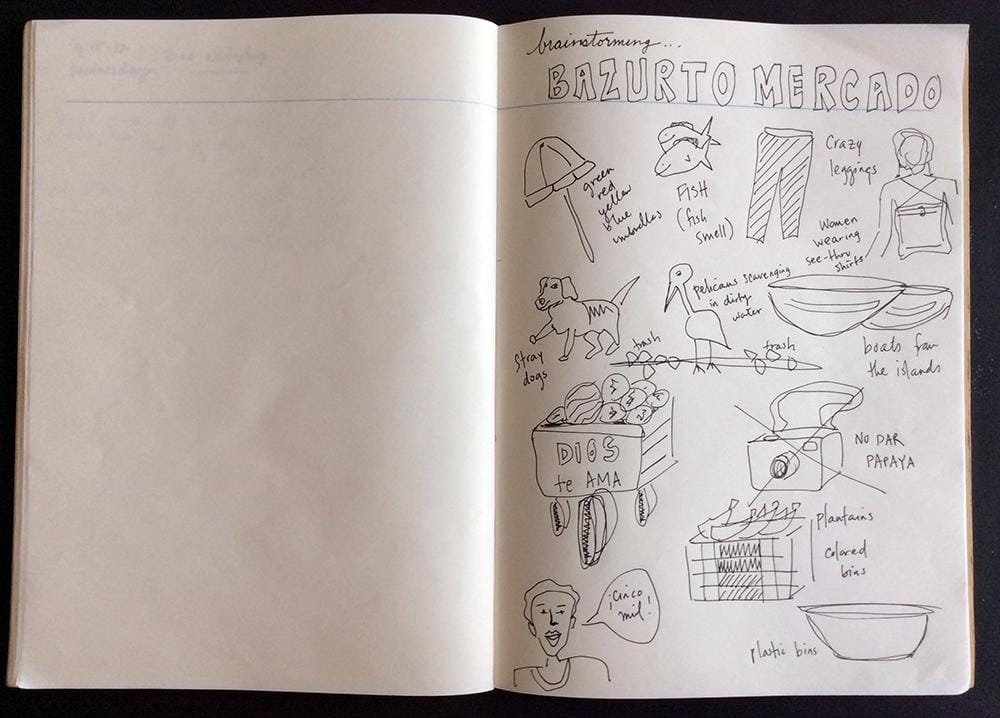 brainstorming...
BAZURTO MERCADO
green
red
yellow
blue
umbrellas
FISH
(fish
smell)
Crazy
leggings
Women
wearing
see-thru
shirts
Stray
dogs
pelicans scavenging
in dirty
water
trash
trash
boats from
the islands
DIOS
te AMA
NO DAR
PAPAYA
plantains
colored
bins
¡Cinco
mil!
plastic bins